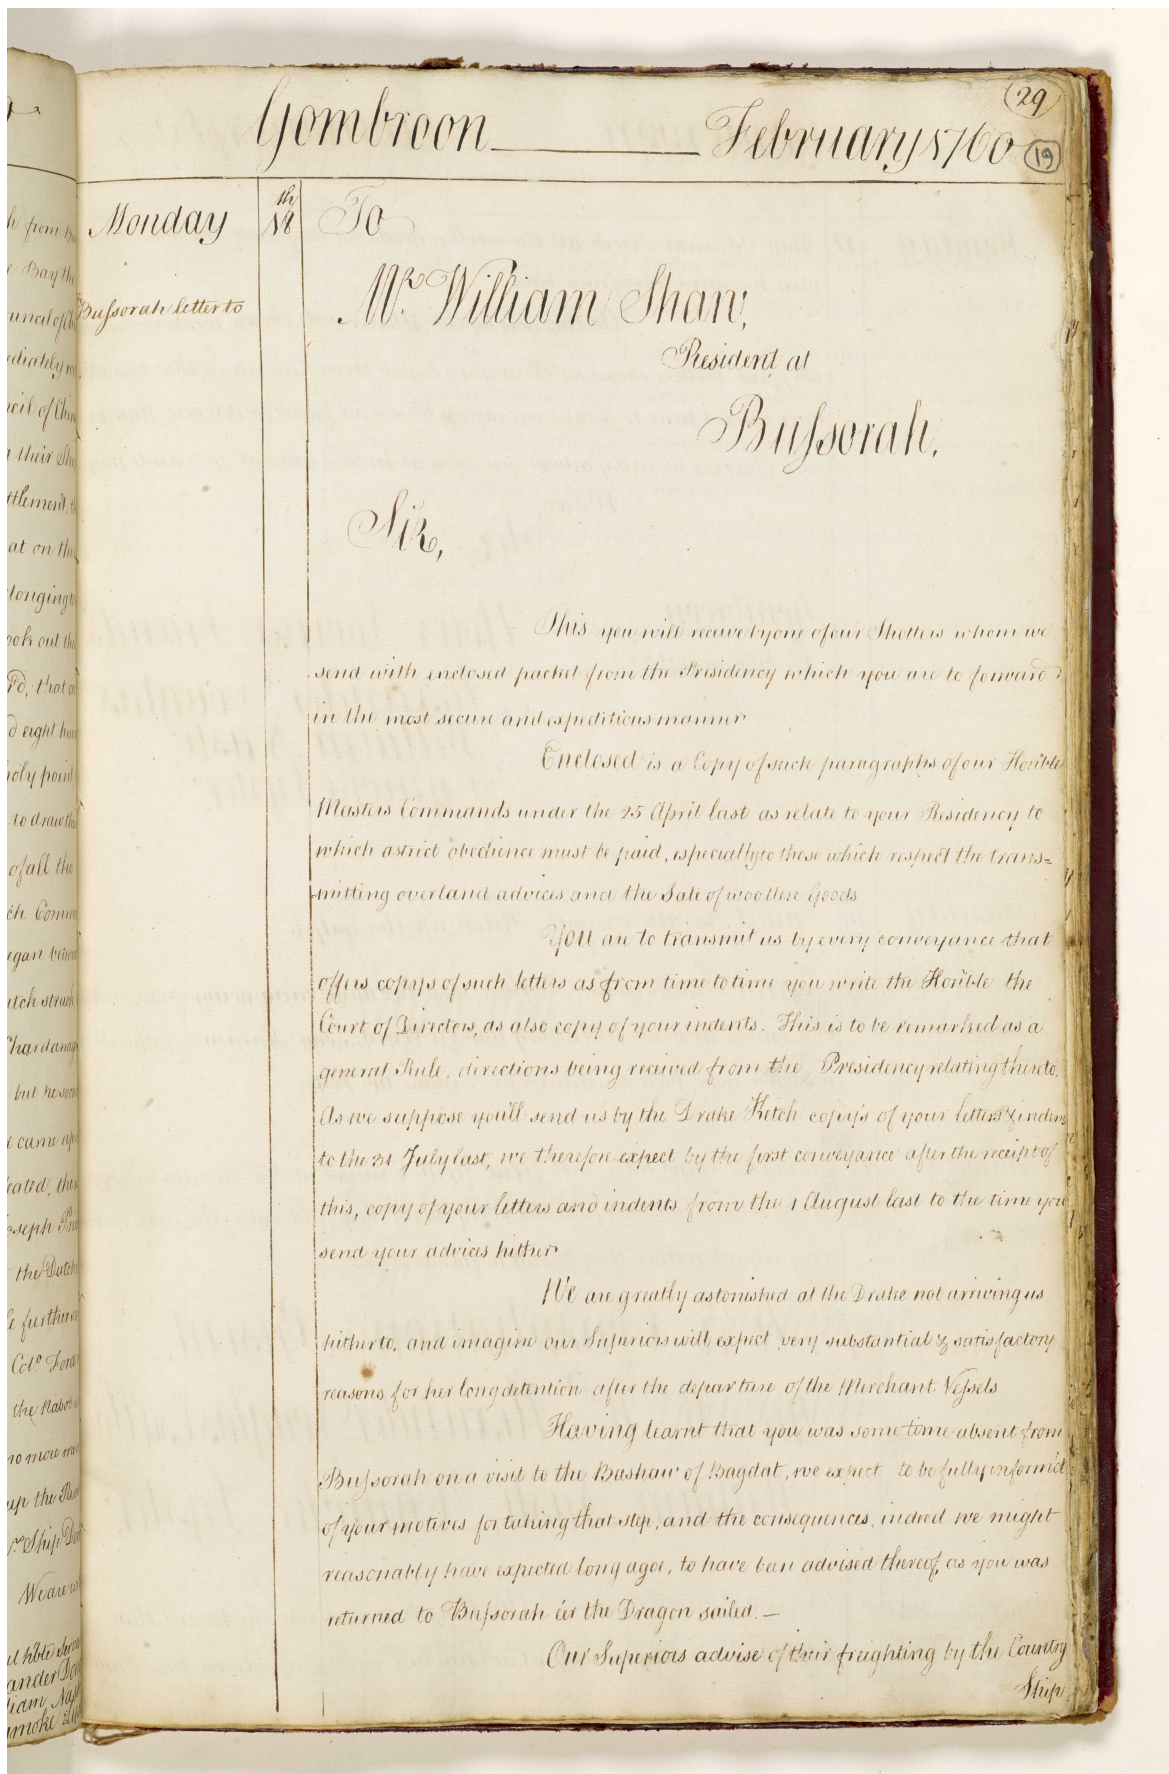 29
Gombroon February 1760
19
Monday 18th To
Mr. William Shaw,
Bussorah letter to
Resident at
Bussorah,
Sir,
This you will receive by one of our Shotters whom we
send with enclosed packet from the Presidency which you are to forward
in the most secure and expeditious manner
Enclosed is a Copy of such paragraphs of our Hon'ble
Masters Commands under the 25 April last as relate to your Residency to
which a strict obedience must be paid, especially to these which respect the trans=
mitting overland advices and the Sale of woollen Goods
You are to transmit us by every conveyance that
offers copys of such letters as from time to time you write the Hon'ble the
Court of Directors, as also copy of your indents. This is to be remarked as a
general Rule. directions being received from the Presidency relating thereto.
As we suppose you'll send us by the Drake Ketch copy's of your letters & indents
to the 31 July last, we therefore expect by the first conveyance after the receipt of
this, copy of your letters and indents from the 1 August last to the time you
send your advices hither
We are greatly astonished at the Drake not arriving us
hitherto, and imagine our Superiors will expect very substantial & satisfactory
reasons for her long detention after the departure of the Merchant Vessels
Having learnt that you was some time absent from
Bussorah on a visit to the Bashaw of Bagdat, we expect to be fully inform'd
of your motives for taking that step, and the consequences. indeed we might
reasonably have expected long agoe, to have been advised thereof, as you was
returned to Bussorah e'er the Dragon sailed. —
Our Superiors advise of their freighting by the Country
Ship